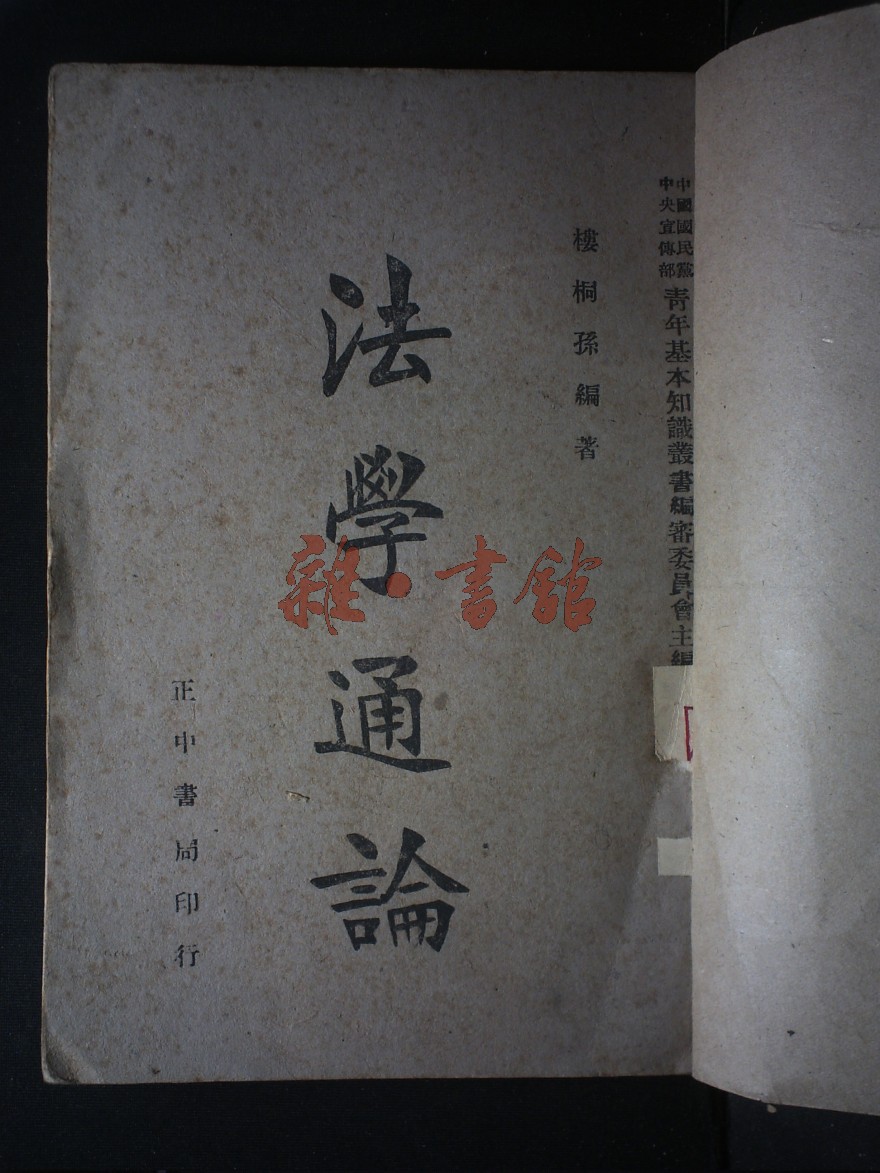 中國國民黨
中央宣傳部
青年基本知識叢書編審委員會主編
樓桐孫編著
法學通論
正中書局印行
雜·書館